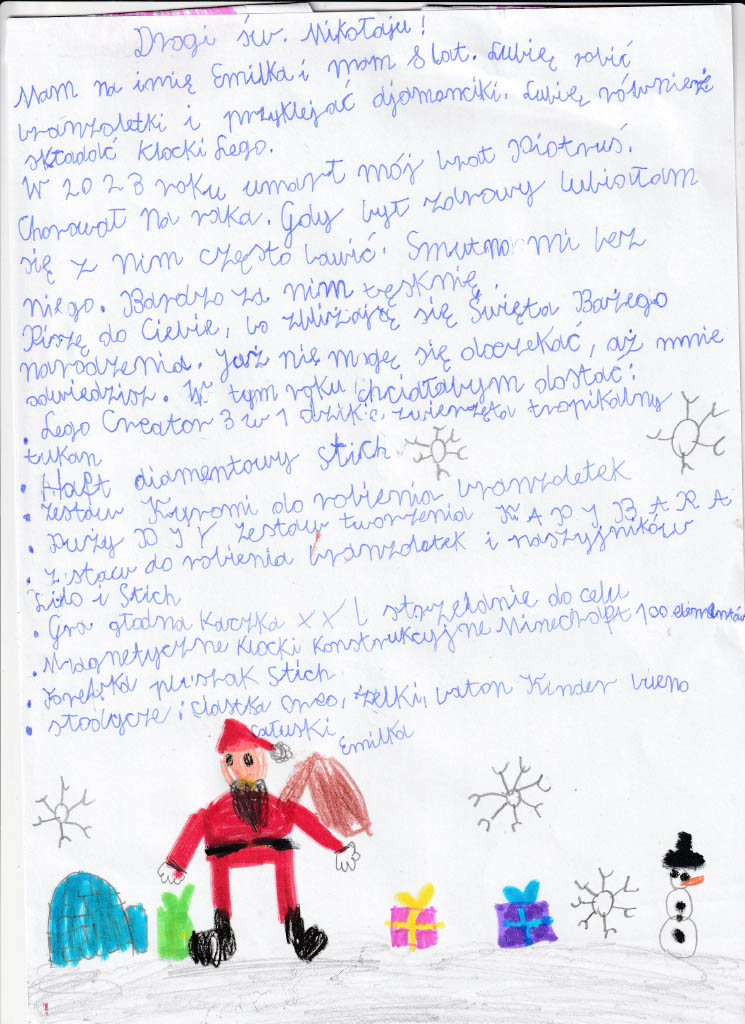 Drogi św. Mikołaju!
Mam na imię Emilka i mam 8 lat. Lubię robić
branzoletki i przyklejać djamenciki. Lubię również
składać klocki Lego.
W 2023 roku umarł mój brat Piotruś.
Chorował na raka. Gdy był zdrowy lubiałam
się z nim często bawić. Smutno mi bez
niego. Bardzo za nim tęsknię.
Piszę do Ciebie, bo zbliżają się Święta Bożego
narodzenia. Już nie mogę się doczekać, aż mnie
odwiedzisz. W tym roku chciałabym dostać:
• Lego Creator 3 w 1 dzikie zwierzęta tropikalny
tukan
• Haft diamentowy Stich
• zestaw Kuromi do robienia branzoletek
• Duży DIY zestaw tworzenia KAPYBARA
• Zestaw do robienia branzoletek i naszyjników
Lilo i Stich
• Gra głodna kaczka XXL strzelanie do celu
• Magnetyczne klocki konstrukcyjne Minecraft 100 elementów
• Torebka pluszak Stich
• słodycze: ciastka oreo, żelki, baton Kinder bueno
całuski
Emilka